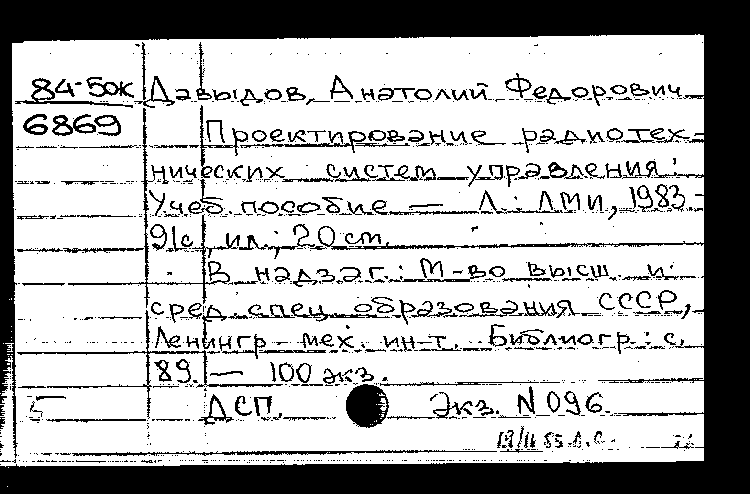 84-5ок Давыдов, Анатолий Федорович
6869 Проектирование радиотех-
нических систем управления:
Учеб. пособие — Л.: ЛМИ, 1983.-
91с. ил.; 20 cm.
В надзаг.: М-во высш. и
сред. спец. образования СССР,
Ленингр. мех. ин-т. Библиогр.: с.
89. — 100 экз.
5 ДСП. Экз. N 096.